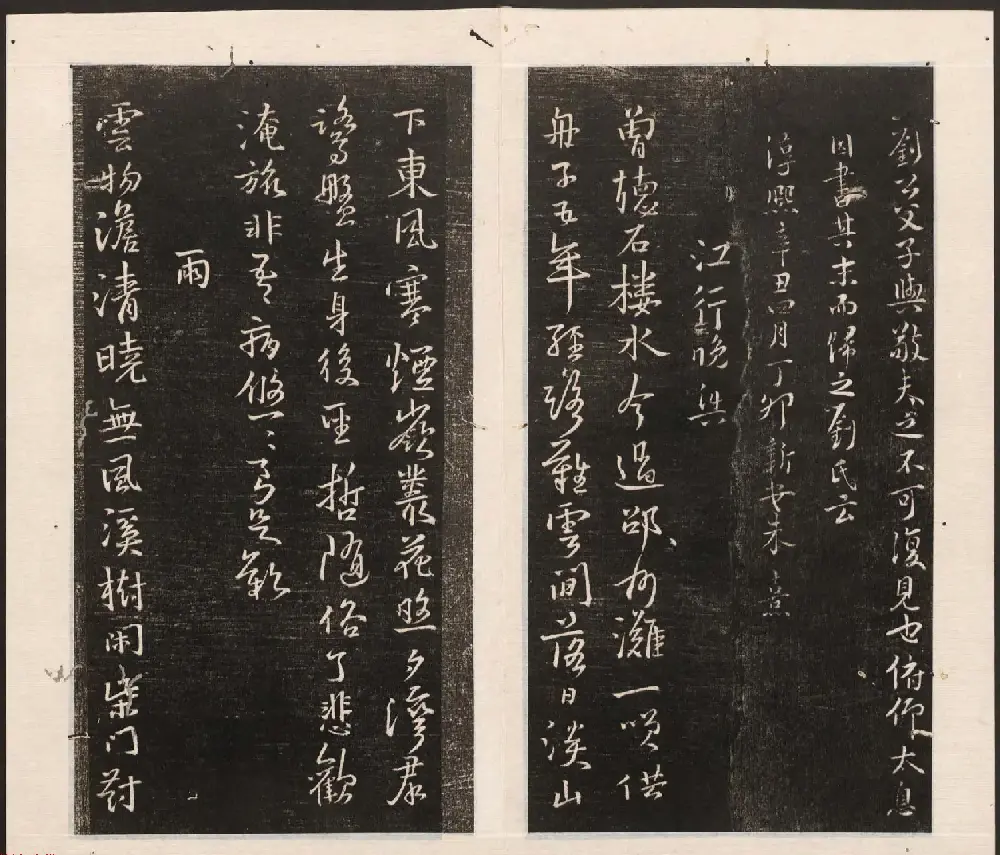 劉公父子與敬夫不可復見也俯仰太息
因書其末而歸之劉氏云
淳熙辛丑四月丁卯新安朱熹
江行晚興
曾聽石樓水今過邵州灘一咲供
舟子五年經路難雲間落日淡山
下東風寒煙嶺叢花照夕灣羣
鷺盤生身後聖哲隨俗了悲歡
淹旅非吾病悠〻良足歎
雨
雲物澹清曉無風溪樹閑柴門對